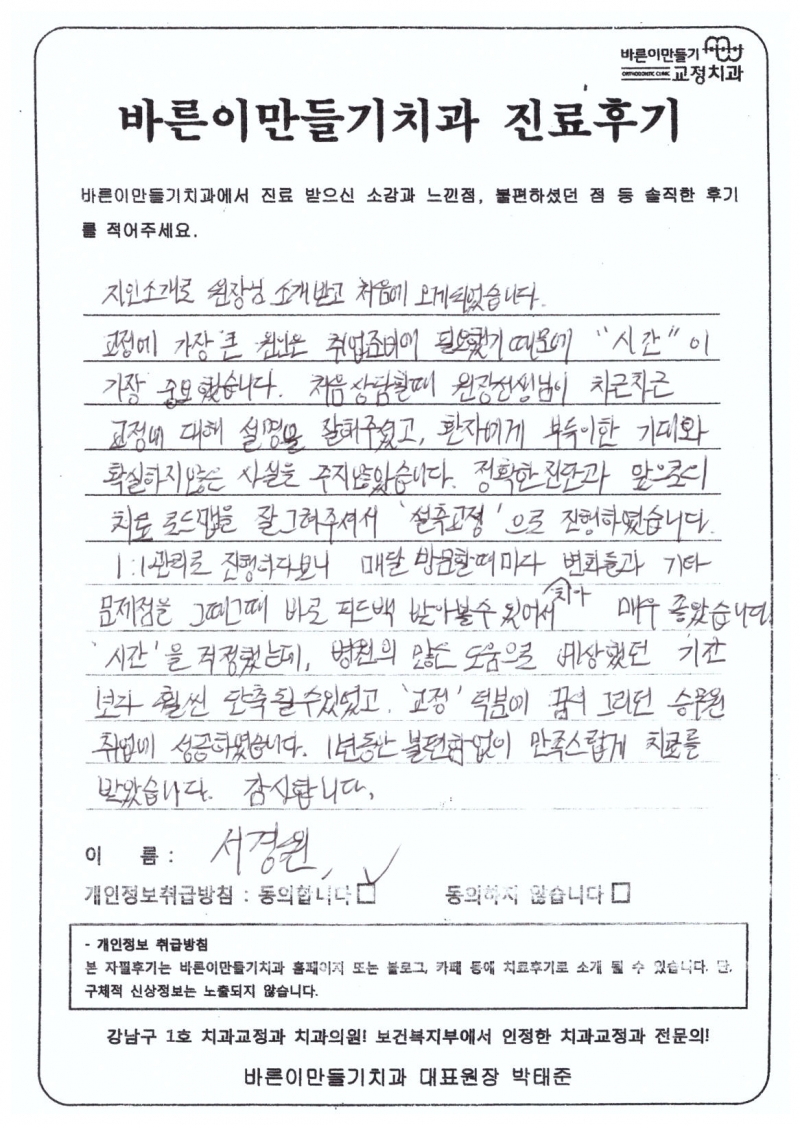 바른이만들기
ORTHODONTIC CLINIC 교정치과
바른이만들기치과 진료후기
바른이만들기치과에서 진료 받으신 소감과 느낀점, 불편하셨던 점 등 솔직한 후기
를 적어주세요.
지인소개로 원장님 소개받고 처음에 오게되었습니다.
교정에 가장 큰 원인은 취업준비에 필요했기때문에 "시간"이
가장 중요했습니다. 처음상담할때 원장선생님이 차근차근
교정에 대해 설명을 잘해주셨고, 환자에게 부득이한 기대와
확실하지않은 사실을 주지않았습니다. 정확한진단과 앞으로의
치료 로드맵을 잘그려주셔서 '설측교정'으로 진행하였습니다.
1:1관리로 진행하다보니 매달 방문할때마다 변화들과 기타
문제점을 그때그때 바로 피드백 받아볼수 있어서 매우 좋았습니다.
치아
'시간'을 걱정했는데, 병원의 많은 도움으로 예상했던 기간
보다 훨씬 단축될수있었고. '교정' 덕분에 꿈에 그리던 승무원
취업에 성공하였습니다. 1년동안 불편함없이 만족스럽게 치료를
받았습니다. 감사합니다.
이 름 : 서경원
개인정보취급방침 : 동의합니다 □ 동의하지 않습니다 □
- 개인정보 취급방침
본 자필후기는 바른이만들기치과 홈페이지 또는 블로그, 카페 등에 치료후기로 소개 될 수 있습니다. 단,
구체적 신상정보는 노출되지 않습니다.
강남구 1호 치과교정과 치과의원! 보건복지부에서 인정한 치과교정과 전문의!
바른이만들기치과 대표원장 박태준